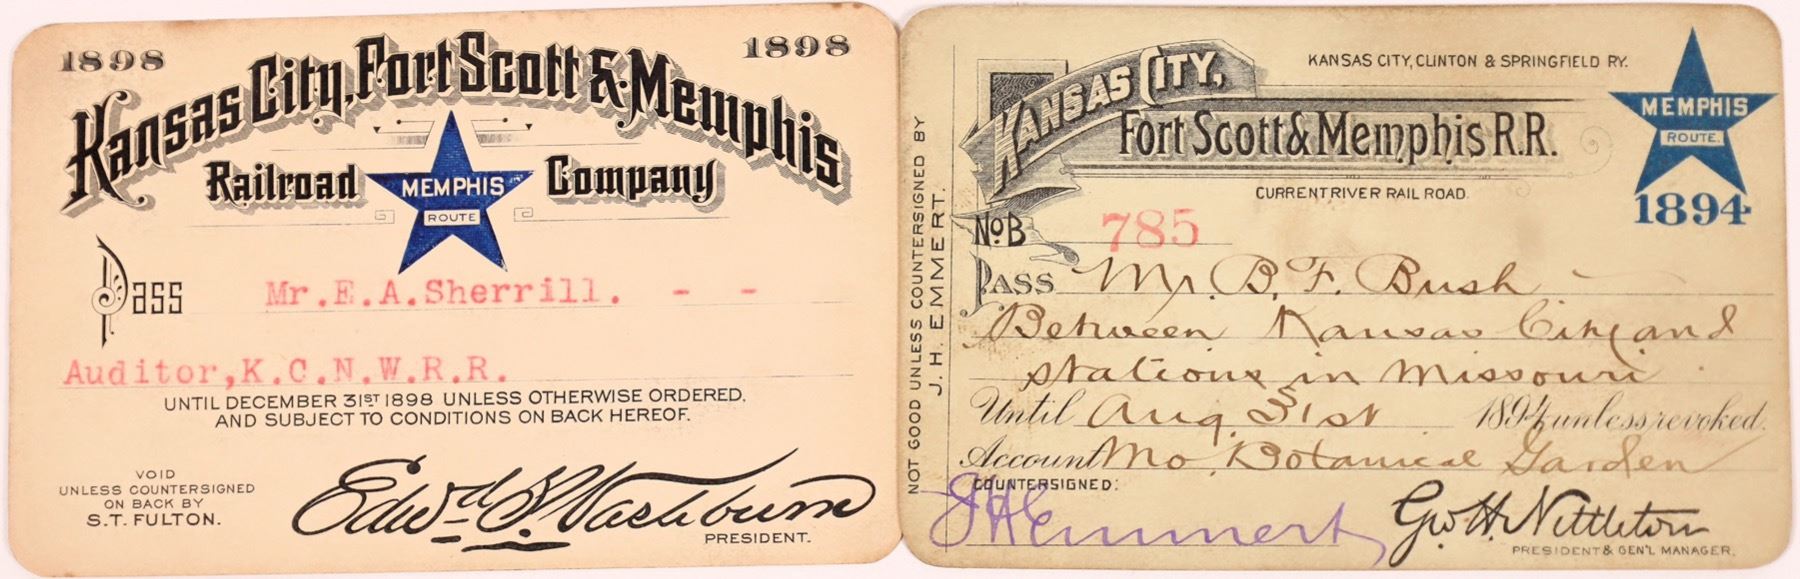 1898 1898
Kansas City, Fort Scott & Memphis
Railroad Company
MEMPHIS
ROUTE
Pass Mr.E.A.Sherrill. - -
Auditor,K.C.N.W.R.R.
UNTIL DECEMBER 31ST 1898 UNLESS OTHERWISE ORDERED,
AND SUBJECT TO CONDITIONS ON BACK HEREOF.
VOID
UNLESS COUNTERSIGNED
ON BACK BY
S.T. FULTON.
Edwd S. Washburn
PRESIDENT.
KANSAS CITY, CLINTON & SPRINGFIELD RY.
KANSAS CITY,
Fort Scott & Memphis R.R.
CURRENT RIVER RAIL ROAD.
MEMPHIS
ROUTE.
1894
No B 785
PASS Mr. B. F. Bush
Between Kansas City and
stations in Missouri
Until Aug. 31st 1894 unless revoked.
Account Mo. Botanical Garden
COUNTERSIGNED:
J H Emmert
Geo. H. Nettleton
PRESIDENT & GEN'L MANAGER.
NOT GOOD UNLESS COUNTERSIGNED BY
J. H. EMMERT.